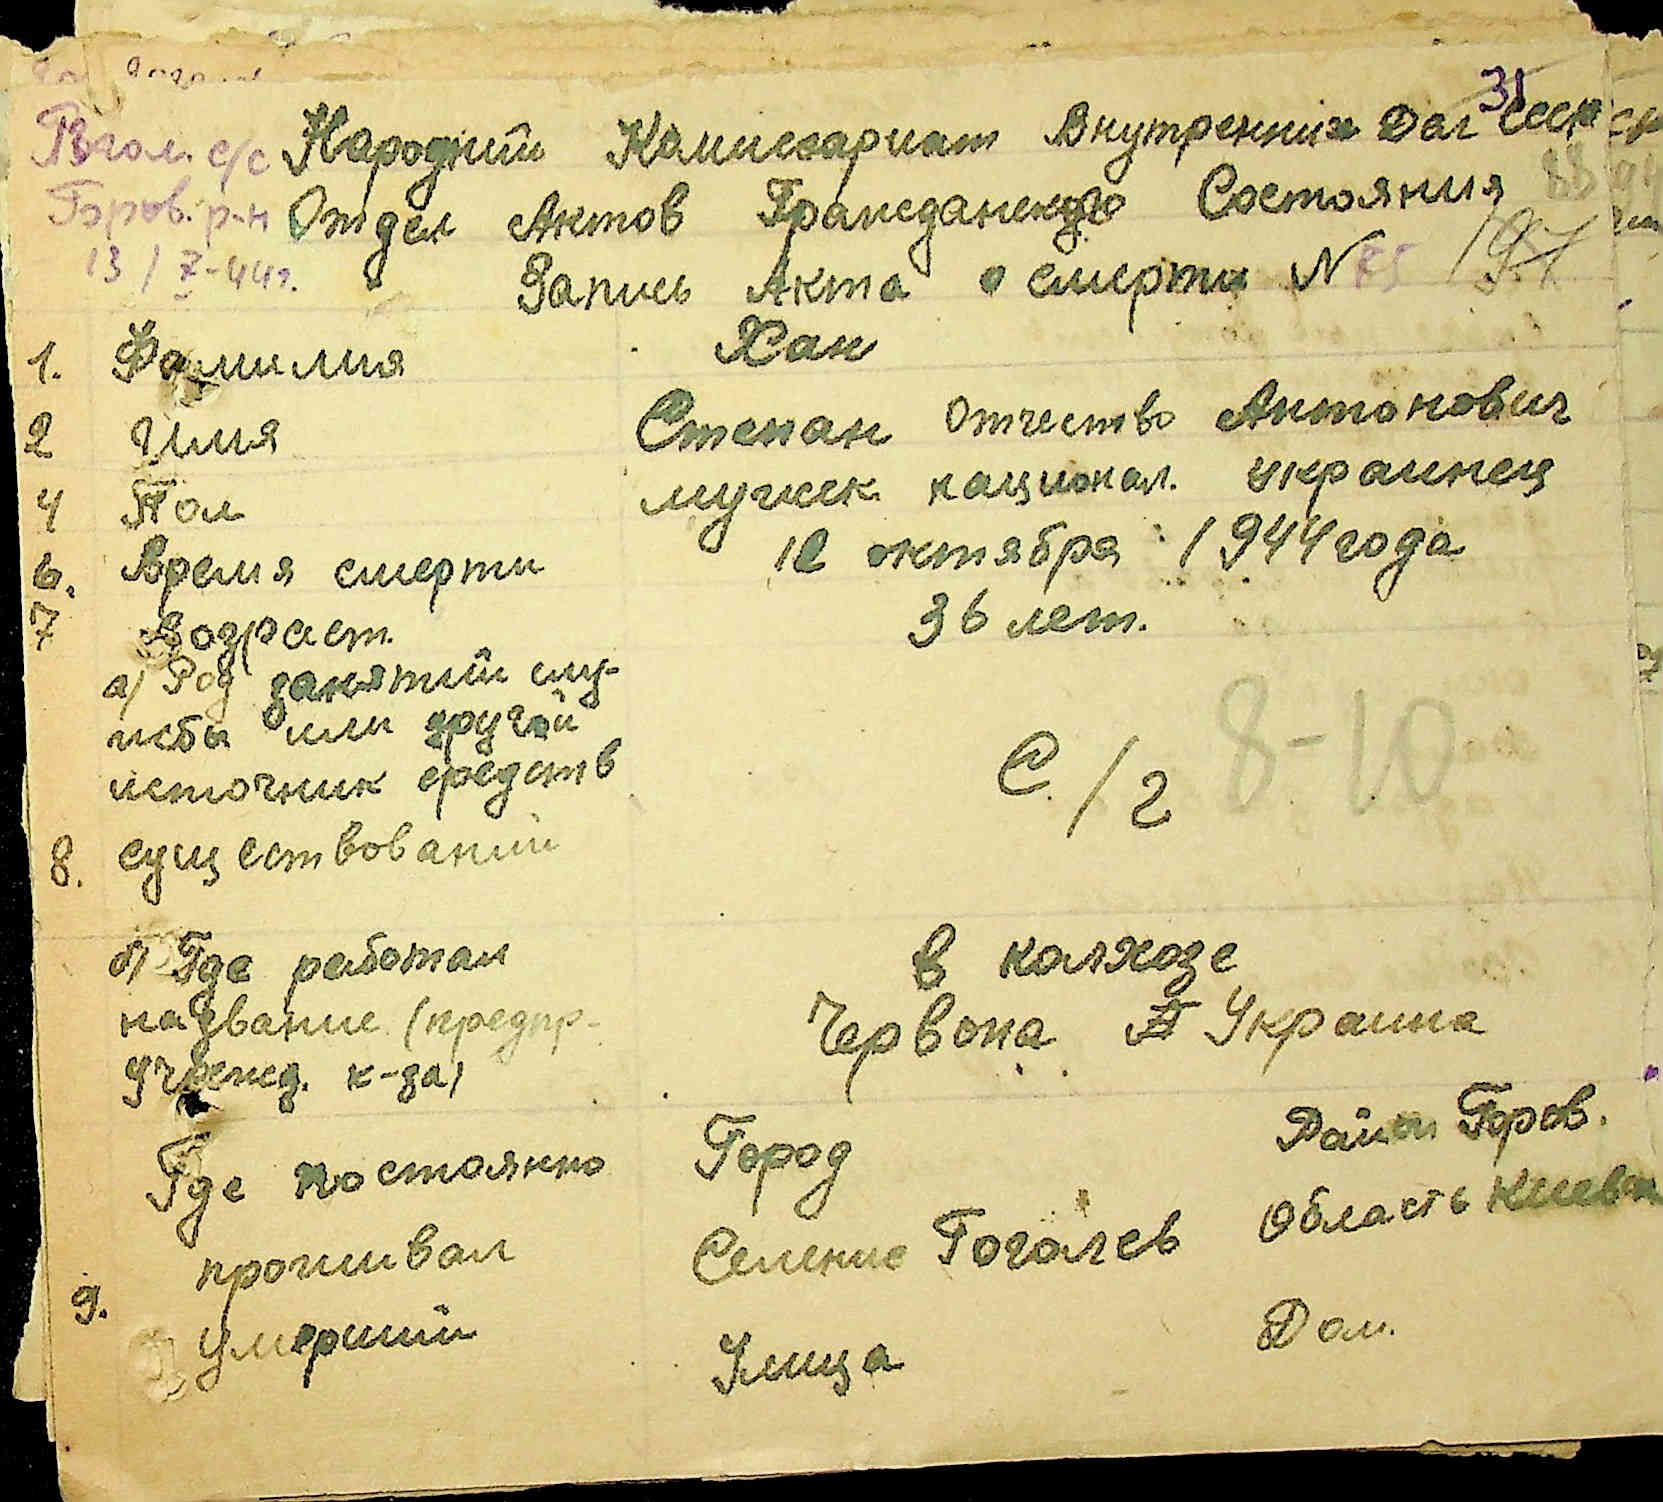 31
Гогол. с/с Народний Комиссариат Внутренних Дел СССР
Горов. р-н Отдел Актов Гражданского Состояния 88
13 / X-44г. Запись Акта о смерти N 75 / 97
1. Фамилия Хан
2 Имя Степан Отчество Антонович
4 Пол мужск. национал. украинец
6. Время смерти октября 1944 года
7 Возраст. 36 лет.
а) Род занятий слу-
жбы или другой
источник средств С/г 8-10
8. существований
б) Где работал в колхозе
название (предпр- Червона Украина
учрежд. к-за)
Где постоянно Город Район Горов.
проживал Селение Гоголев Область Киевск
9. умерший Улица Дом.